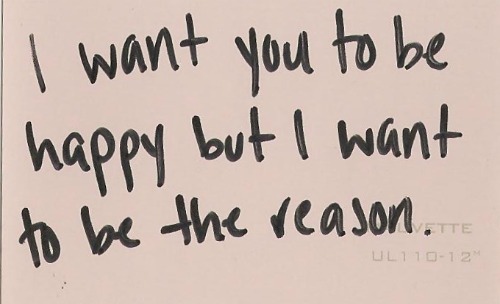 I want you to be
happy but I want
to be the reason.
UL110-12"